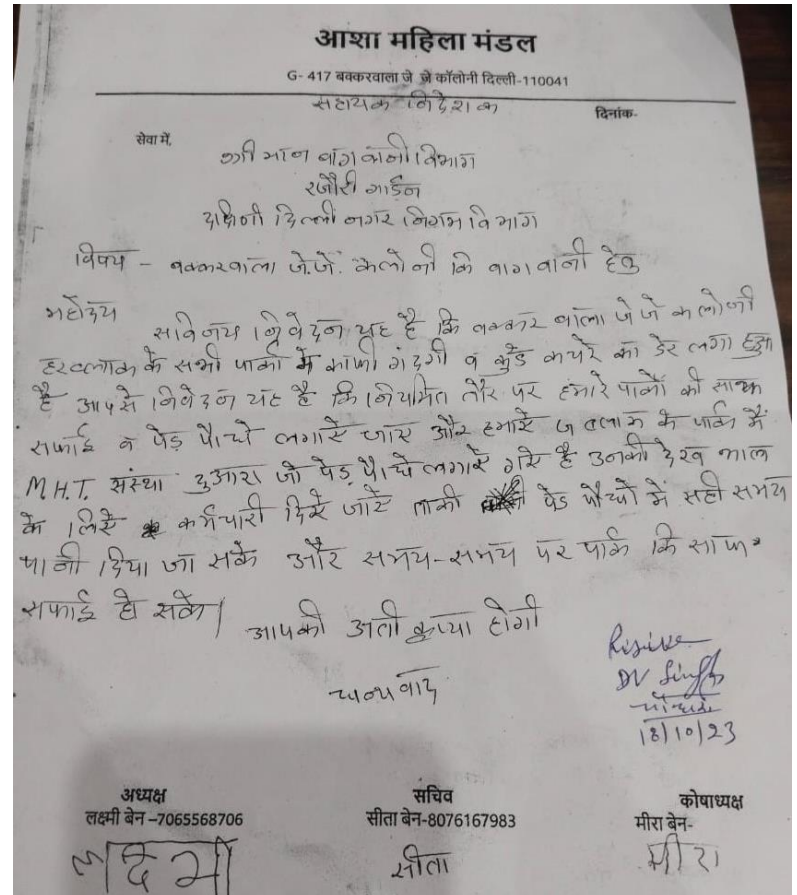 आशा महिला मंडल
G- 417 बक्करवाला जे जे कॉलोनी दिल्ली-110041
सहायक निदेशक
दिनांक-
सेवा में,
श्री मान बाग वानी विभाग
रजौरी गार्डन
दक्षिणी दिल्ली नगर निगम विभाग
विषय - बक्करवाला जे.जे. कलोनी कि बाग वानी हेतु
महोदय सविनय निवेदन यह है कि बक्कर वाला जे जे कलोनी
हर ब्लाक के सभी पार्को मे काफी गंदगी व कुडे कचरे का डेर लगा हुआ
है आपसे निवेदन यह है कि नियमित तौर पर हमारे पार्को की साफ
सफाई व पेड़ पौधे लगाऐ जाए और हमारे ब्लाक के पार्क में
M.H.T. संस्था दुआरा जो पेड़ पौधे लगाऐ गऐ है उनकी देख भाल
के लिऐ कर्मचारी दिऐ जाऐ ताकी पेड पौधों में सही समय
पानी दिया जा सके और समय-समय पर पार्क कि साफ-
सफाई हो सके।
आपकी अती कृप्या होगी
धन्यवाद
Risive
DV Singh
18/10/23
अध्यक्ष
लक्ष्मी बेन –7065568706
सचिव
सीता बेन-8076167983
कोषाध्यक्ष
मीरा बेन-
सीता
मीरा